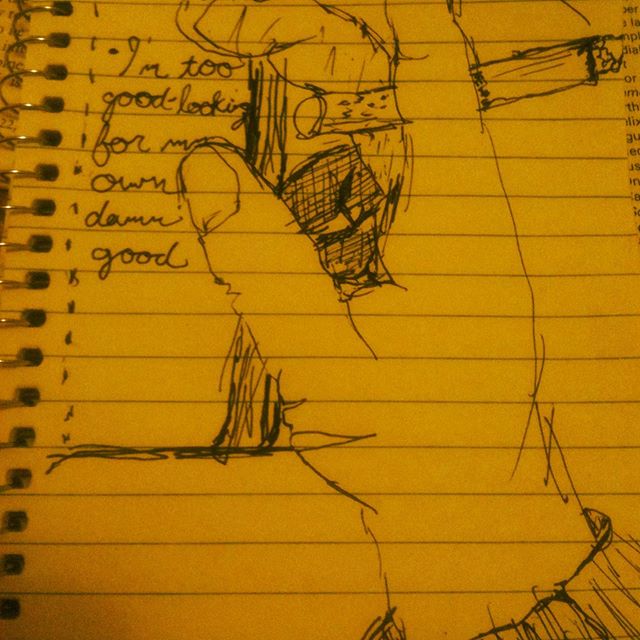 I'm too
good-looking
for my
own
damn
good